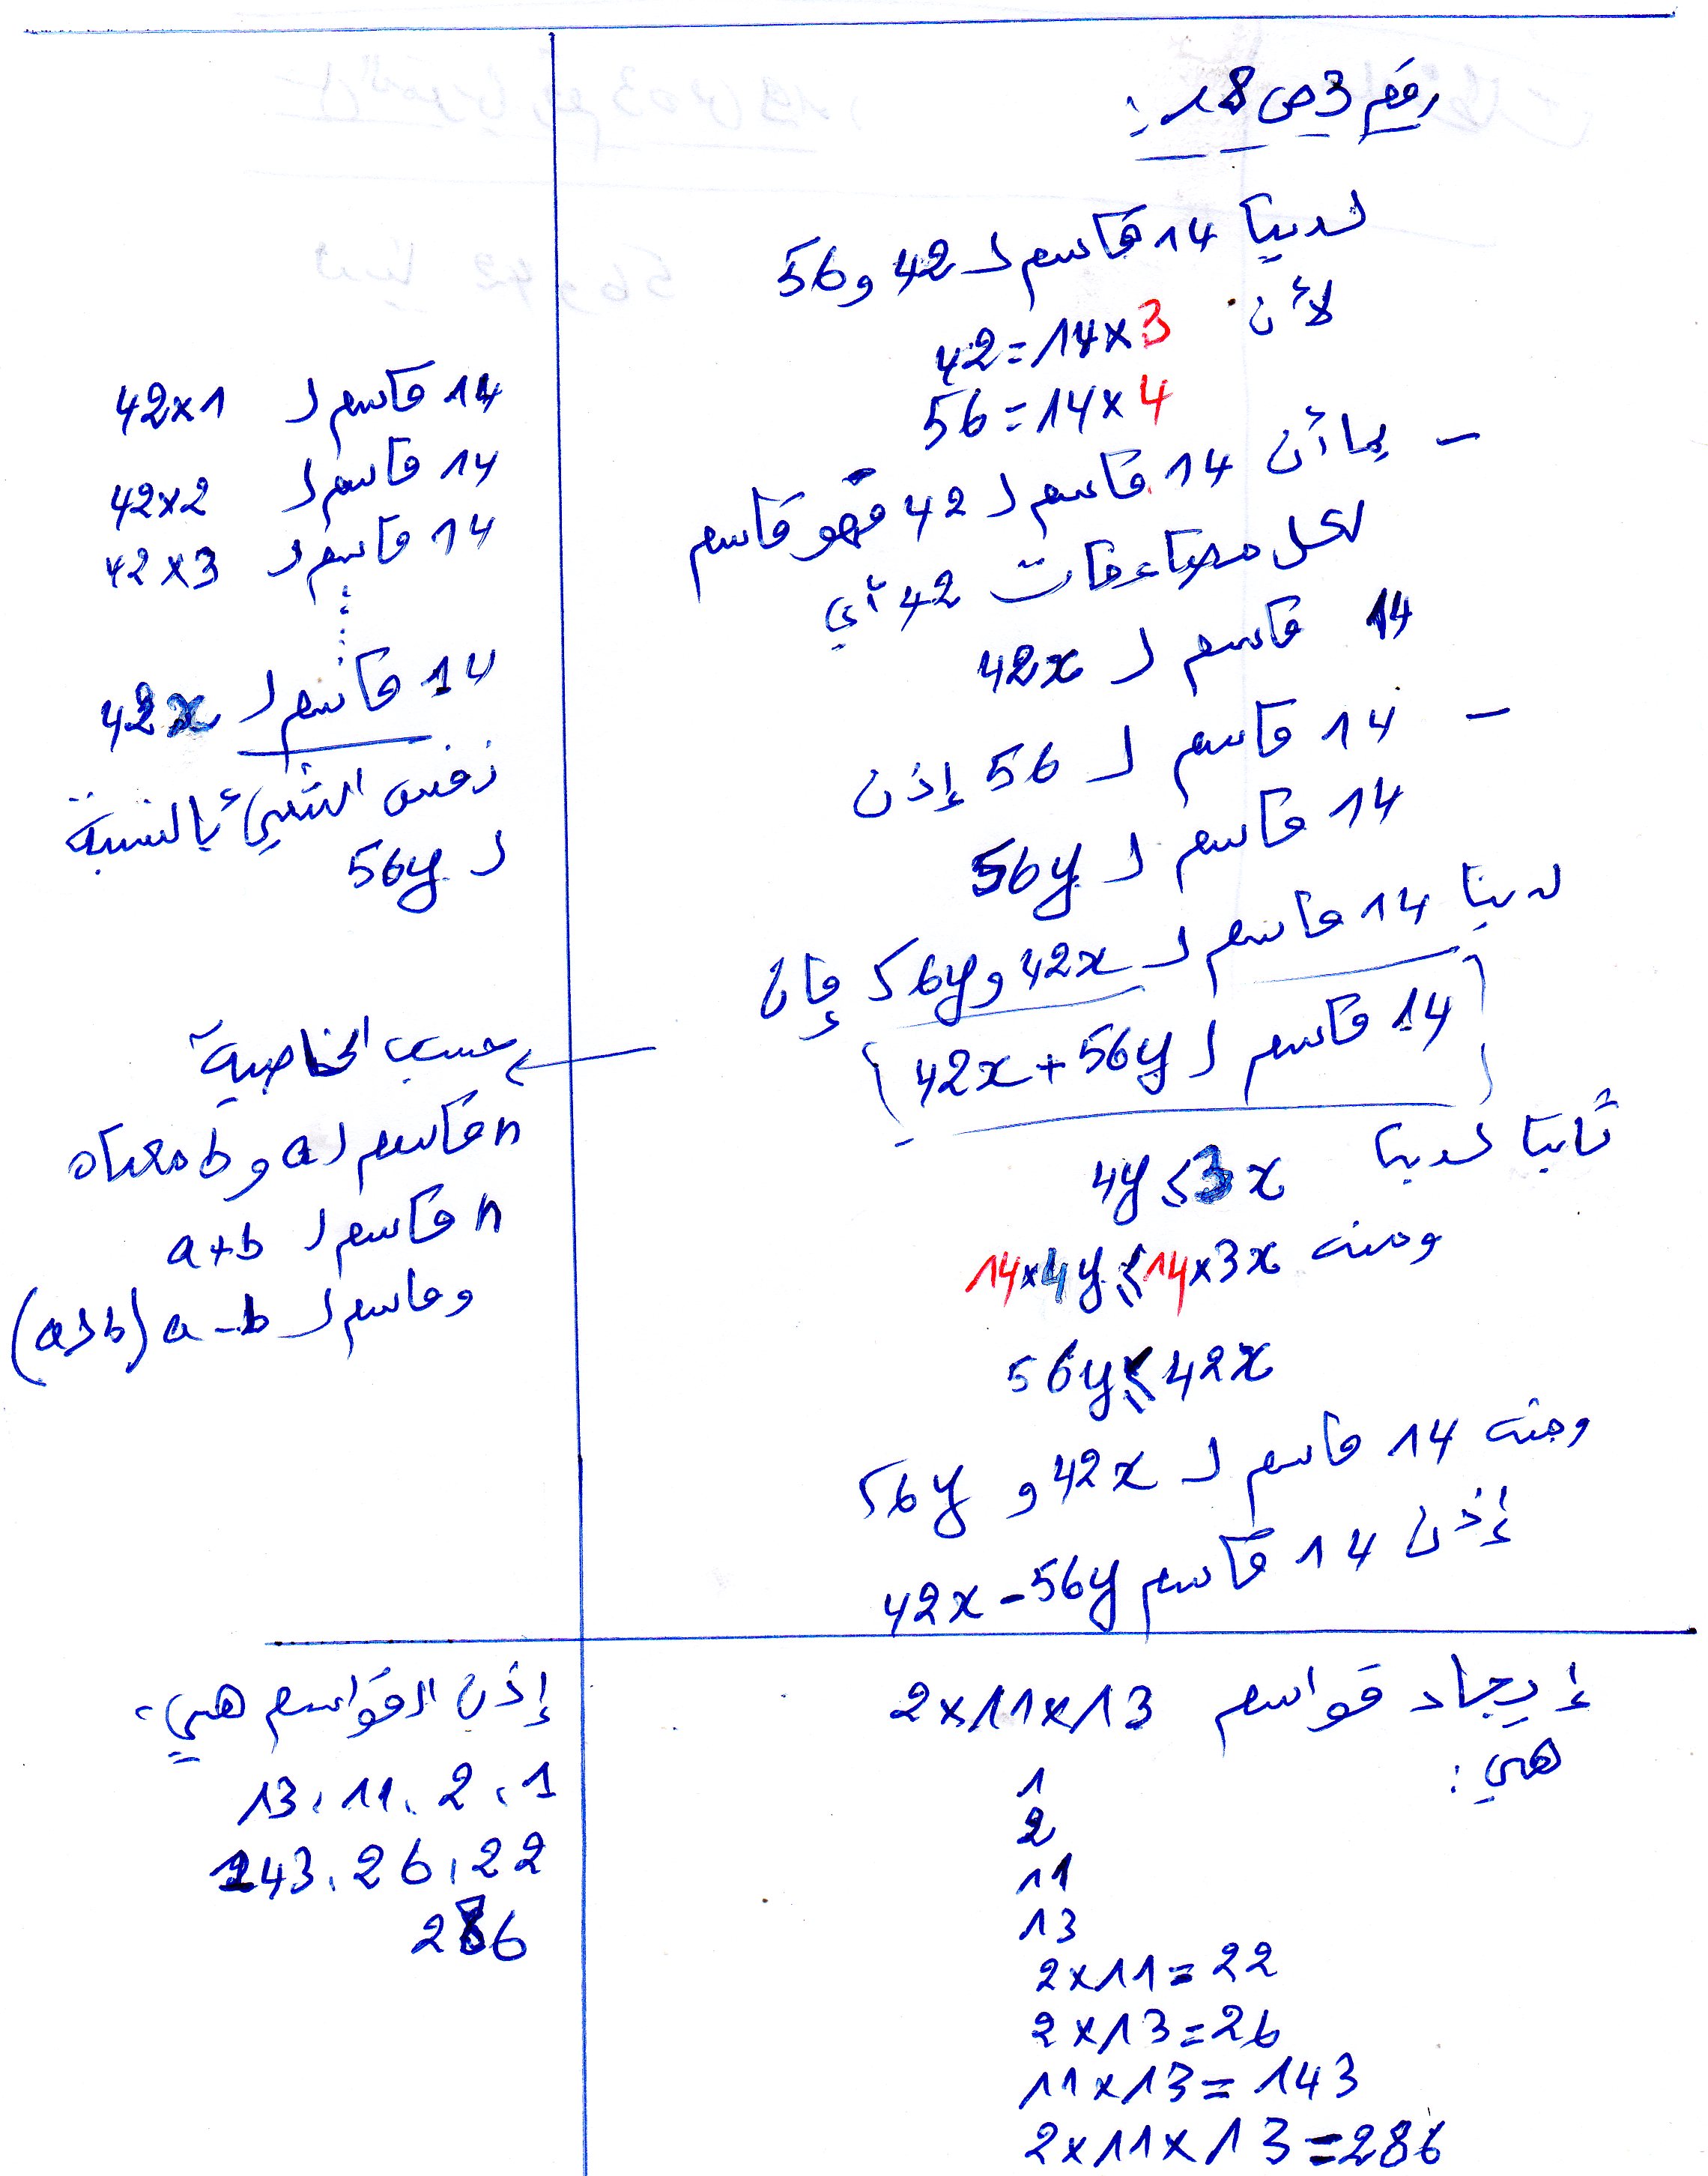 رقم 3 ص 18 :
لدينا 14 قاسم لـ 42 و 56
لأن 42=14×3
56=14×4
- بما أن 14 قاسم لـ 42 فهو قاسم
لكل مضاعفات 42 أي
14 قاسم لـ 42x
- 14 قاسم لـ 56 إذن
14 قاسم لـ 56y
لدينا 14 قاسم لـ 42x و 56y فإن
14 قاسم لـ 42x+56y
ثانيا لدينا 4y≤3x
ومنه 14×4y≤14×3x
56y≤42x
ومنه 14 قاسم لـ 42x و 56y
إذن 14 قاسم 42x-56y
14 قاسم لـ 42×1
14 قاسم لـ 42×2
14 قاسم لـ 42×3
14 قاسم لـ 42x
نفس الشيئ بالنسبة
لـ 56y
حسب الخاصية
n قاسم لـ a و b معناه
n قاسم لـ a+b
وقاسم لـ a-b (a>b)
إيجاد قواسم 2×11×13
هي:
1
2
11
13
2×11=22
2×13=26
11×13=143
2×11×13=286
إذن القواسم هي:
1، 2، 11، 13
22، 26، 143
286